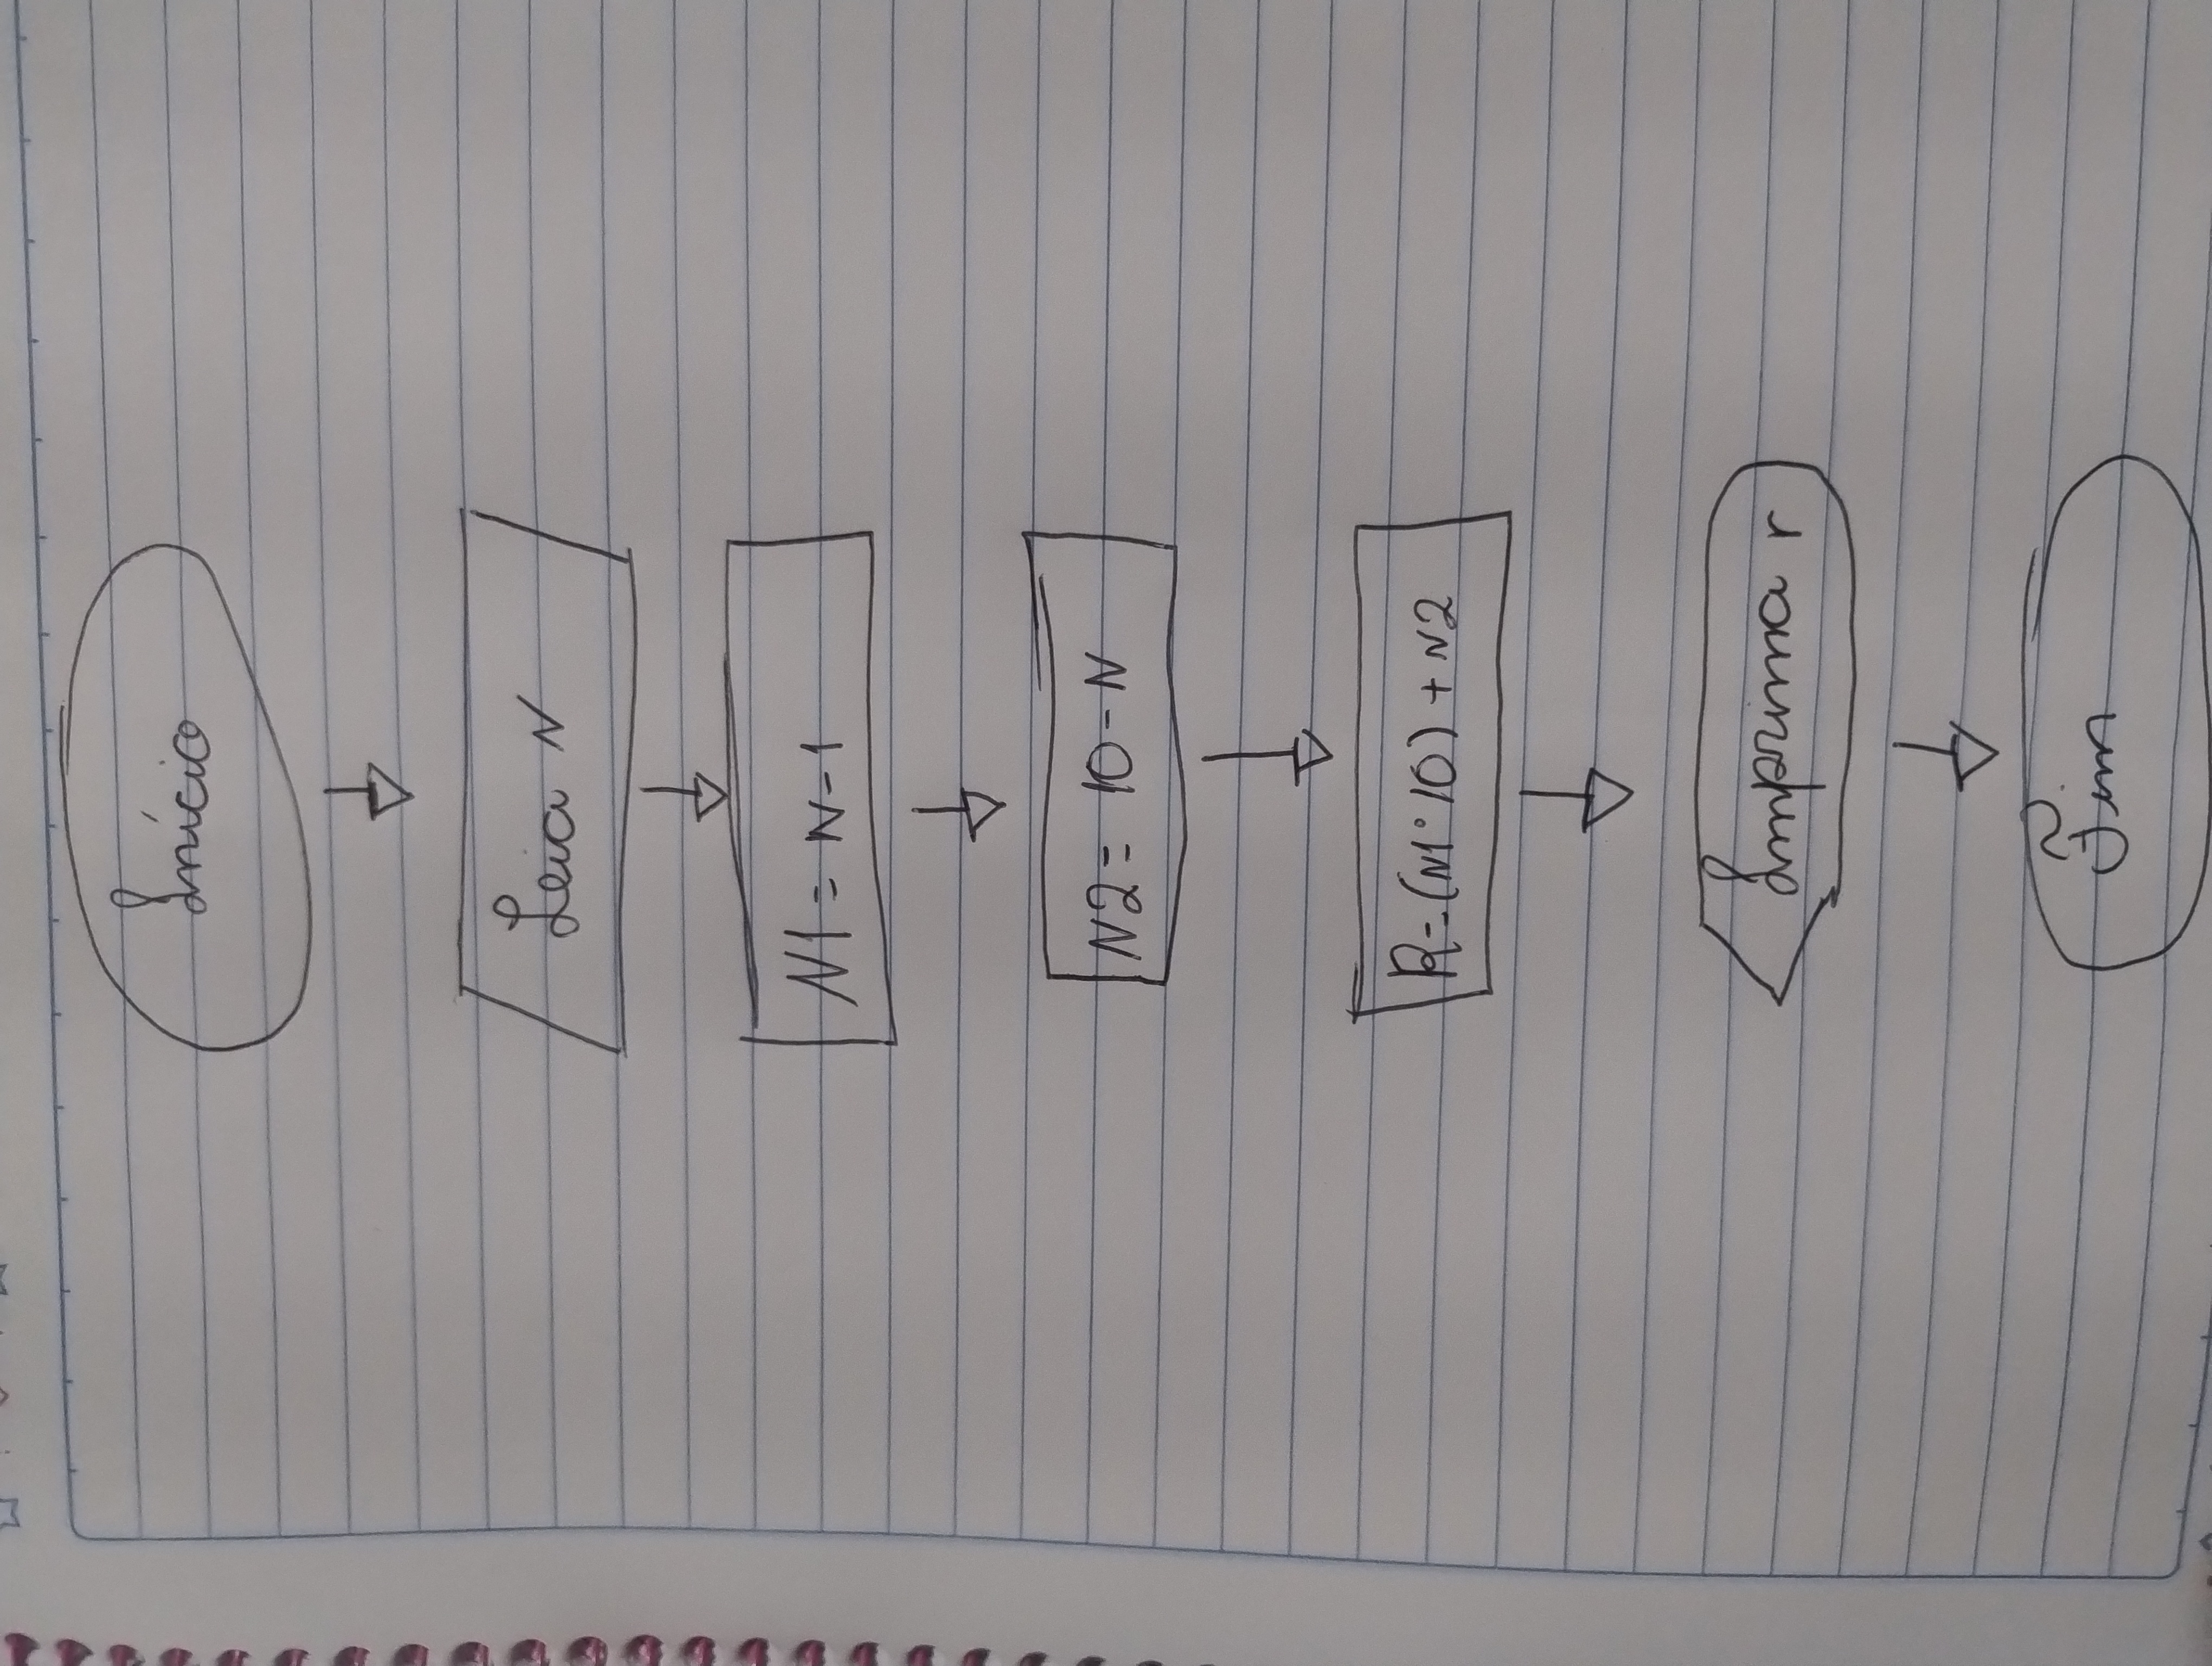 Início
Leia N
N1 = N-1
N2 = 10-N
R=(N1·10) + N2
Imprima r
Fim